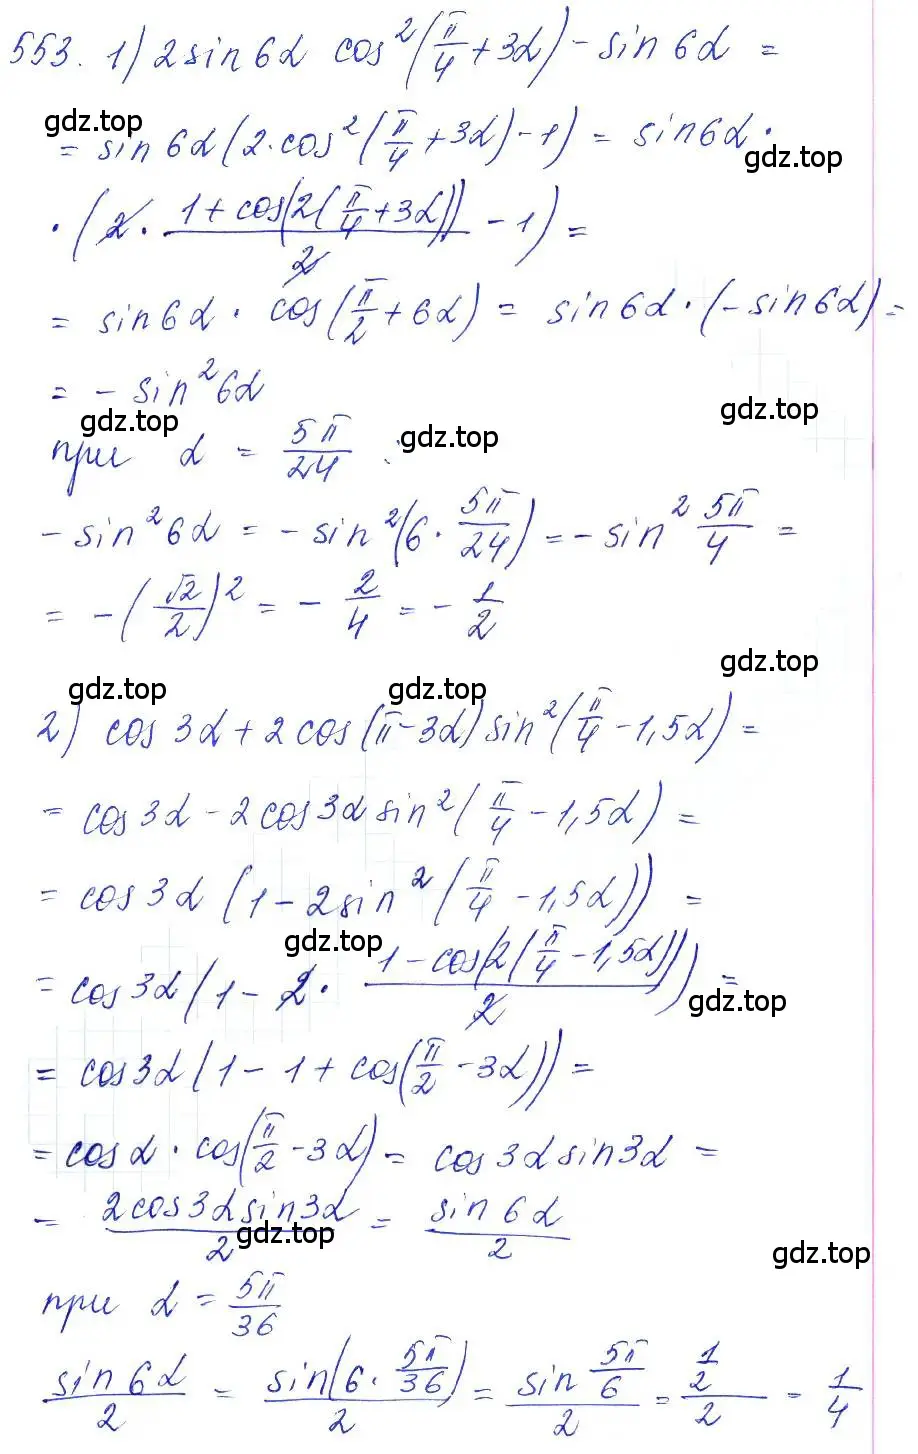 553. 1) 2 sin 6α cos²(π/4 + 3α) - sin 6α =
gdz.top
= sin 6α (2·cos²(π/4 + 3α) - 1) = sin 6α ·
gdz.top
· (2 · (1 + cos(2(π/4 + 3α)))/2 - 1) =
= sin 6α · cos(π/2 + 6α) = sin 6α · (- sin 6α) =
= - sin² 6α
gdz.top gdz.top gdz.top
при α = 5π/24 :
- sin² 6α = - sin²(6 · 5π/24) = - sin² 5π/4 =
= - (√2/2)² = - 2/4 = - 1/2
gdz.top gdz.top gdz.top
2) cos 3α + 2 cos (π - 3α) sin²(π/4 - 1,5α) =
= cos 3α - 2 cos 3α sin²(π/4 - 1,5α) =
= cos 3α (1 - 2 sin²(π/4 - 1,5α)) =
gdz.top
= cos 3α (1 - 2 · (1 - cos(2(π/4 - 1,5α)))/2) =
gdz.top
= cos 3α (1 - 1 + cos(π/2 - 3α)) =
= cos α · cos(π/2 - 3α) = cos 3α sin 3α =
= 2 cos 3α sin 3α/2 = sin 6α/2
gdz.top gdz.top
при α = 5π/36
sin 6α/2 = sin(6 · 5π/36)/2 = sin 5π/6/2 = 1/2/2 = 1/4